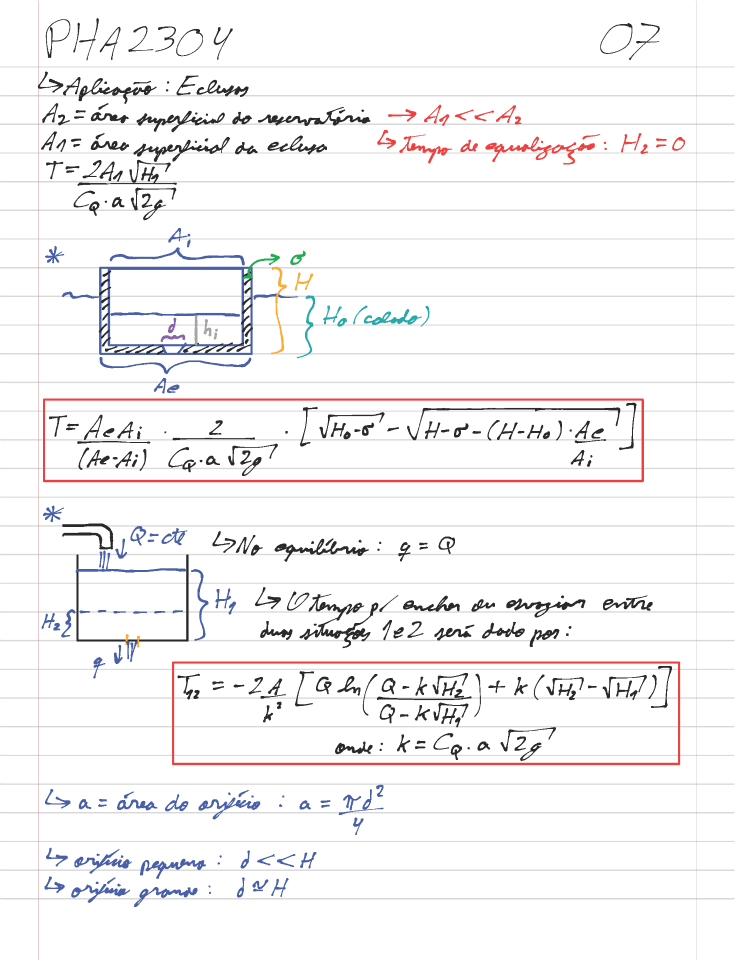 PHA2304 07
↳ Aplicação: Eclusas
A₂ = área superficial do reservatório → A₁ << A₂
A₁ = área superficial da eclusa ↳ tempo de equalização: H₂ = 0
T = 2A₁√H₁ / (C_Q · a √2g)
* Aᵢ σ H
d hᵢ H₀ (calado)
Ae
T = AeAᵢ/(Ae-Aᵢ) · 2/(C_Q · a √2g) · [√(H₀-σ) - √(H-σ-(H-H₀) · Ae/Aᵢ)]
* Q = cte ↳ No equilíbrio: q = Q
H₂ H₁ ↳ O tempo p/ encher ou esvaziar entre
q duas situações 1 e 2 será dado por:
T₁₂ = -2A/k² [Q ln((Q - k√H₂)/(Q - k√H₁)) + k(√H₂ - √H₁)]
onde: k = C_Q · a √2g
↳ a = área do orifício: a = πd²/4
↳ orifício pequeno: d << H
↳ orifício grande: d ≃ H